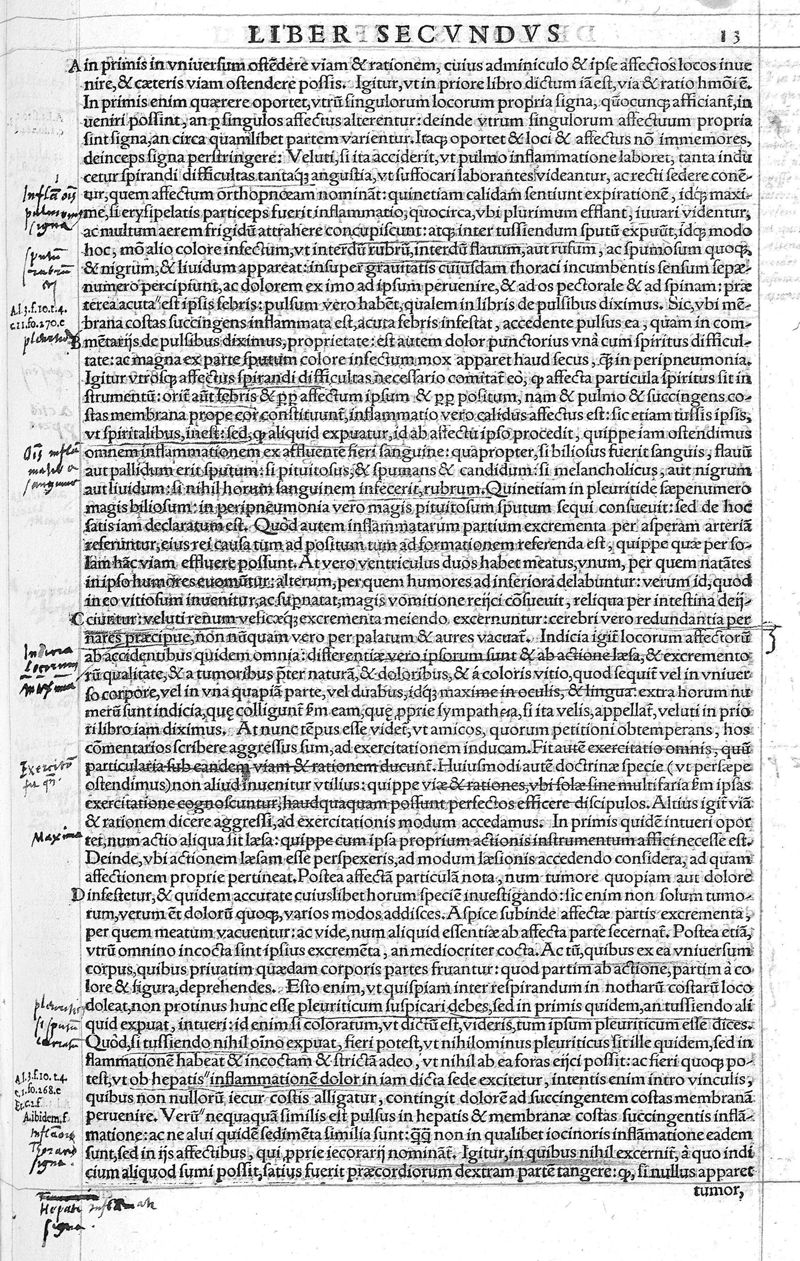 LIBER SECVNDVS 13
A in primis in vniuersum ostẽdere viam & rationem, cuius adminiculo & ipse affectos locos inue
nire, & cæteris viam ostendere possis. Igitur, vt in priore libro dictum iã est, via & ratio hmõi ẽ.
In primis enim quærere oportet, vtrũ singulorum locorum propria signa, quocunq; afficiant, in
ueniri possint, an p singulos affectus alterentur: deinde vtrum singulorum affectuum propria
sint signa, an circa quamlibet partem varientur. Itaq; oportet & loci & affectus nõ immemores,
deinceps signa perstringere: Veluti, si ita acciderit, vt pulmo inflammatione laboret, tanta indu
cetur spirandi difficultas, tantaq; angustia, vt suffocari laborantes videantur, ac recti sedere conẽ-
tur, quem affectum orthopnœam nominãt: quinetiam calidam sentiunt expirationẽ, idq; maxi-
me, si erysipelatis particeps fuerit inflammatio, quocirca, vbi plurimum efflant, iuuari videntur,
ac multum aerem frigidũ attrahere concupiscunt: atq; inter tussiendum sputũ expuũt, idq; modo
hoc, mõ alio colore infectum, vt interdũ rubrũ, interdũ flauum, aut rufum, ac spumosum quoq;,
& nigrum, & liuidum appareat: insuper grauitatis cuiusdam thoraci incumbentis sensum sepæ-
numero percipiunt, ac dolorem ex imo ad ipsum peruenire, & ad os pectorale & ad spinam: præ
terea acuta est ipsis febris: pulsum vero habẽt, qualem in libris de pulsibus diximus. Sic, vbi mẽ-
brana costas succingens inflammata est, acuta febris infestat, accedente pulsus ea, quam in com-
B mẽtarijs de pulsibus diximus, proprietate: est autem dolor punctorius vnà cum spiritus difficul-
tate: ac magna ex parte sputum colore infectum mox apparet haud secus, q̃ in peripneumonia.
Igitur vtrosq; affectus spirandi difficultas necessario comitat̃ eò, q; affecta particula spiritus sit in
strumentũ: orit̃ aũt febris & pp affectum ipsum & pp positum, nam & pulmo & succingens co-
stas membrana prope cor constituunt̃, inflammatio vero calidus affectus est: sic etiam tussis ipsis,
vt spiritalibus, inest: sed, q; aliquid expuatur, id ab affectu ipso procedit, quippe iam ostendimus
omnem inflammationem ex affluente fieri sanguine: quapropter, si biliosus fuerit sanguis, flauũ
aut pallidum erit sputum: si pituitosus, & spumans & candidum: si melancholicus, aut nigrum
aut liuidum: si nihil horum sanguinem infecerit, rubrum. Quinetiam in pleuritide sæpenumero
magis biliosum: in peripneumonia vero magis pituitosum sputum sequi consueuit: sed de hoc
satis iam declaratum est. Quòd autem inflammatarum partium excrementa per asperam arteriã
referuntur, eius rei causa tum ad positum tum ad formationem referenda est, quippe quæ per so-
lam hãc viam effluere possunt. At vero ventriculus duos habet meatus, vnum, per quem natãtes
in ipso humores euomũtur: alterum, per quem humores ad inferiora delabuntur: verum id, quod
in eo vitiosum inuenitur, ac supnatat, magis vomitione reijci cõsueuit, reliqua per intestina deij-
C ciuntur: veluti renum vesicæq; excrementa meiendo excernuntur: cerebri vero redundantia per
nares præcipue, non nũquam vero per palatum & aures vacuat̃. Indicia igit̃ locorum affectorũ
ab accidentibus quidem omnia: differentiæ vero ipsorum sunt & ab actione læsa, & excremento
rũ qualitate, & a tumoribus p̃ter naturã, & doloribus, & à coloris vitio, quod sequit̃ vel in vniuer
so corpore, vel in vna quapiã parte, vel duabus, idq; maxime in oculis, & lingua: extra horum nu
merũ sunt indicia, quę colligunt̃ fm eam, quę pprie sympatheia, si ita velis, appellat̃, veluti in prio
ri libro iam diximus. At nunc tẽpus esse videt̃, vt amicos, quorum petitioni obtemperans, hos
cõmentarios scribere aggressus sum, ad exercitationem inducam. Fit autẽ exercitatio omnis, quũ
particularia sub eandem viam & rationem ducunt̃. Huiusmodi autẽ doctrinæ specie (vt persæpe
ostendimus) non aliud inuenitur vtilius: quippe viæ & rationes, vbi solæ sine multifaria fm ipsas
exercitatione cognoscuntur, haudquaquam possunt perfectos efficere discipulos. Altius igit̃ viã
& rationem dicere aggressi, ad exercitationis modum accedamus. In primis quidẽ intueri opor
tet, num actio aliqua sit læsa: quippe cum ipsa proprium actionis instrumentum affici necesse est.
Deinde, vbi actionem læsam esse perspexeris, ad modum læsionis accedendo considera, ad quam
affectionem proprie pertineat. Postea affectã particulã nota, num tumore quopiam aut dolore
D infestetur, & quidem accurate cuiuslibet horum speciẽ inuestigando: sic enim non solum tumo-
rum, verum ẽt dolorũ quoq;, varios modos addisces. Aspice subinde affectæ partis excrementa,
per quem meatum vacuentur: ac vide, num aliquid essentiæ ab affecta parte secernat̃. Postea etiã,
vtrũ omnino incocta sint ipsius excremẽta, an mediocriter cocta. Ac tũ, quibus ex ea vniuersum
corpus, quibus priuatim quædam corporis partes fruantur: quod partim ab actione, partim à co
lore & figura, deprehendes. Esto enim, vt quispiam inter respirandum in notharũ costarũ loco
doleat, non protinus hunc esse pleuriticum suspicari debes, sed in primis quidem, an tussiendo ali
quid expuat, intueri: id enim si coloratum, vt dictũ est, videris, tum ipsum pleuriticum esse dices.
Quòd, si tussiendo nihil oĩno expuat, fieri potest, vt nihilominus pleuriticus sit ille quidem, sed in
flammationẽ habeat & incoctam & strictã adeo, vt nihil ab ea foras eijci possit: ac fieri quoq; po-
test, vt ob hepatis inflammationẽ dolor in iam dicta sede excitetur, intentis enim intro vinculis,
quibus non nullorũ iecur costis alligatur, contingit dolorẽ ad succingentem costas membranã
peruenire. Verũ nequaquã similis est pulsus in hepatis & membranæ costas succingentis inflã-
matione: ac ne alui quidẽ sedimẽta similia sunt: q̃q̃ non in qualibet iocinoris inflãmatione eadem
sunt, sed in ijs affectibus, qui pprie iecorarij nominãt̃. Igitur, in quibus nihil excernit̃, à quo indi
cium aliquod sumi possit, satius fuerit præcordiorum dextram partẽ tangere: q;, si nullus apparet
tumor,
Al.3.f.10.t.4.
c.11.fo.270.e
Maxima
Al.3.f.10.t.4.
c.1.fo.268.e
A.ibidem.f.
signa.